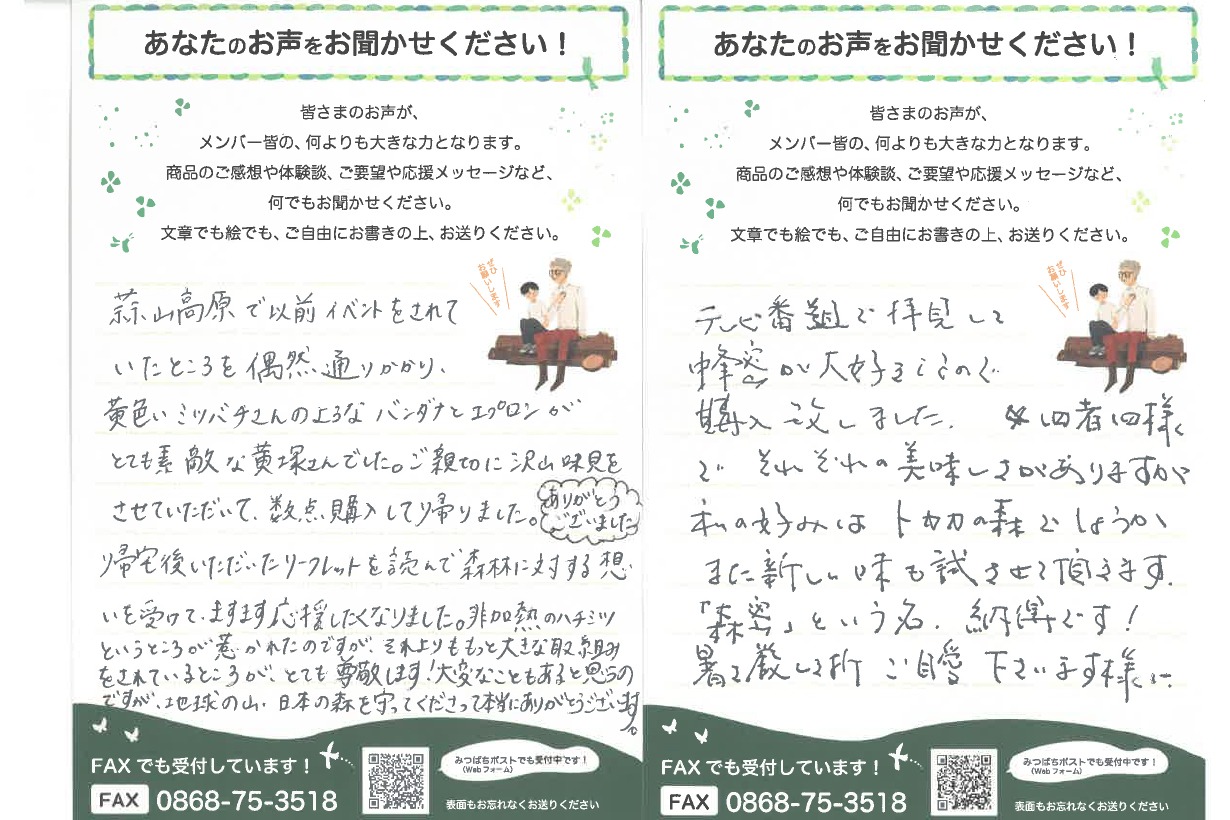 あなたのお声をお聞かせください！
皆さまのお声が、
メンバー皆の、何よりも大きな力となります。
商品のご感想や体験談、ご要望や応援メッセージなど、
何でもお聞かせください。
文章でも絵でも、ご自由にお書きの上、お送りください。
ぜひ
お願いします
蒜山高原で以前イベントをされて
いたところを偶然通りかかり、
黄色いミツバチさんのような バンダナとエプロンが
とても素敵な黄塚さんでした。ご親切に沢山味見を
させていただいて、数点購入して帰りました。
ありがとう
ございました
帰宅後いただいたリーフレットを読んで森林に対する想
いを受けて、ますます応援したくなりました。非加熱のハチミツ
というところが惹かれたのですが、それよりももっと大きな取り組み
をされているところが、とても尊敬します！大変なこともあると思うの
ですが、地球の山、日本の森を守ってくださって本当にありがとうございます。
FAXでも受付しています！
FAX 0868-75-3518
みつばちポストでも受付中です！
（Webフォーム）
表面もお忘れなくお送りください
あなたのお声をお聞かせください！
皆さまのお声が、
メンバー皆の、何よりも大きな力となります。
商品のご感想や体験談、ご要望や応援メッセージなど、
何でもお聞かせください。
文章でも絵でも、ご自由にお書きの上、お送りください。
ぜひ
お願いします
テレビ番組で拝見して
蜂蜜が大好きなので
購入致しました。 四者四様
で それぞれの美味しさがありますが
私の好みは トカカの森でしょうか
また新しい味も試させて頂きます。
「森蜜」という名、納得です！
暑さ厳しき折 ご自愛 下さいます様に
FAXでも受付しています！
FAX 0868-75-3518
みつばちポストでも受付中です！
（Webフォーム）
表面もお忘れなくお送りください